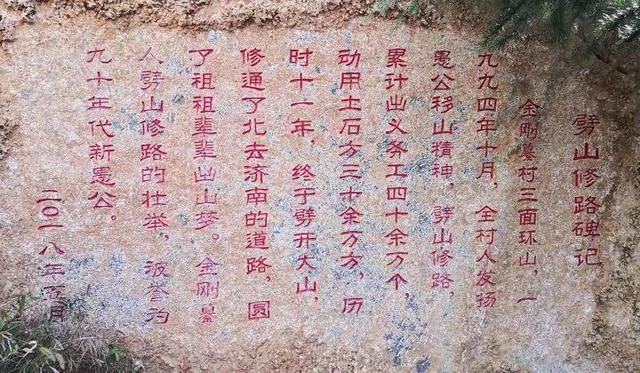 劈山修路碑记
金刚纂村三面环山，一
九九四年十月，全村人发扬
愚公移山精神，劈山修路，
累计出义务工四十余万个，
动用土石方三十余万方，历
时十一年，终于劈开大山，
修通了北去济南的道路，圆
了祖祖辈辈出山梦。金刚纂
人劈山修路的壮举，被誉为
九十年代新愚公。
二〇一八年五月